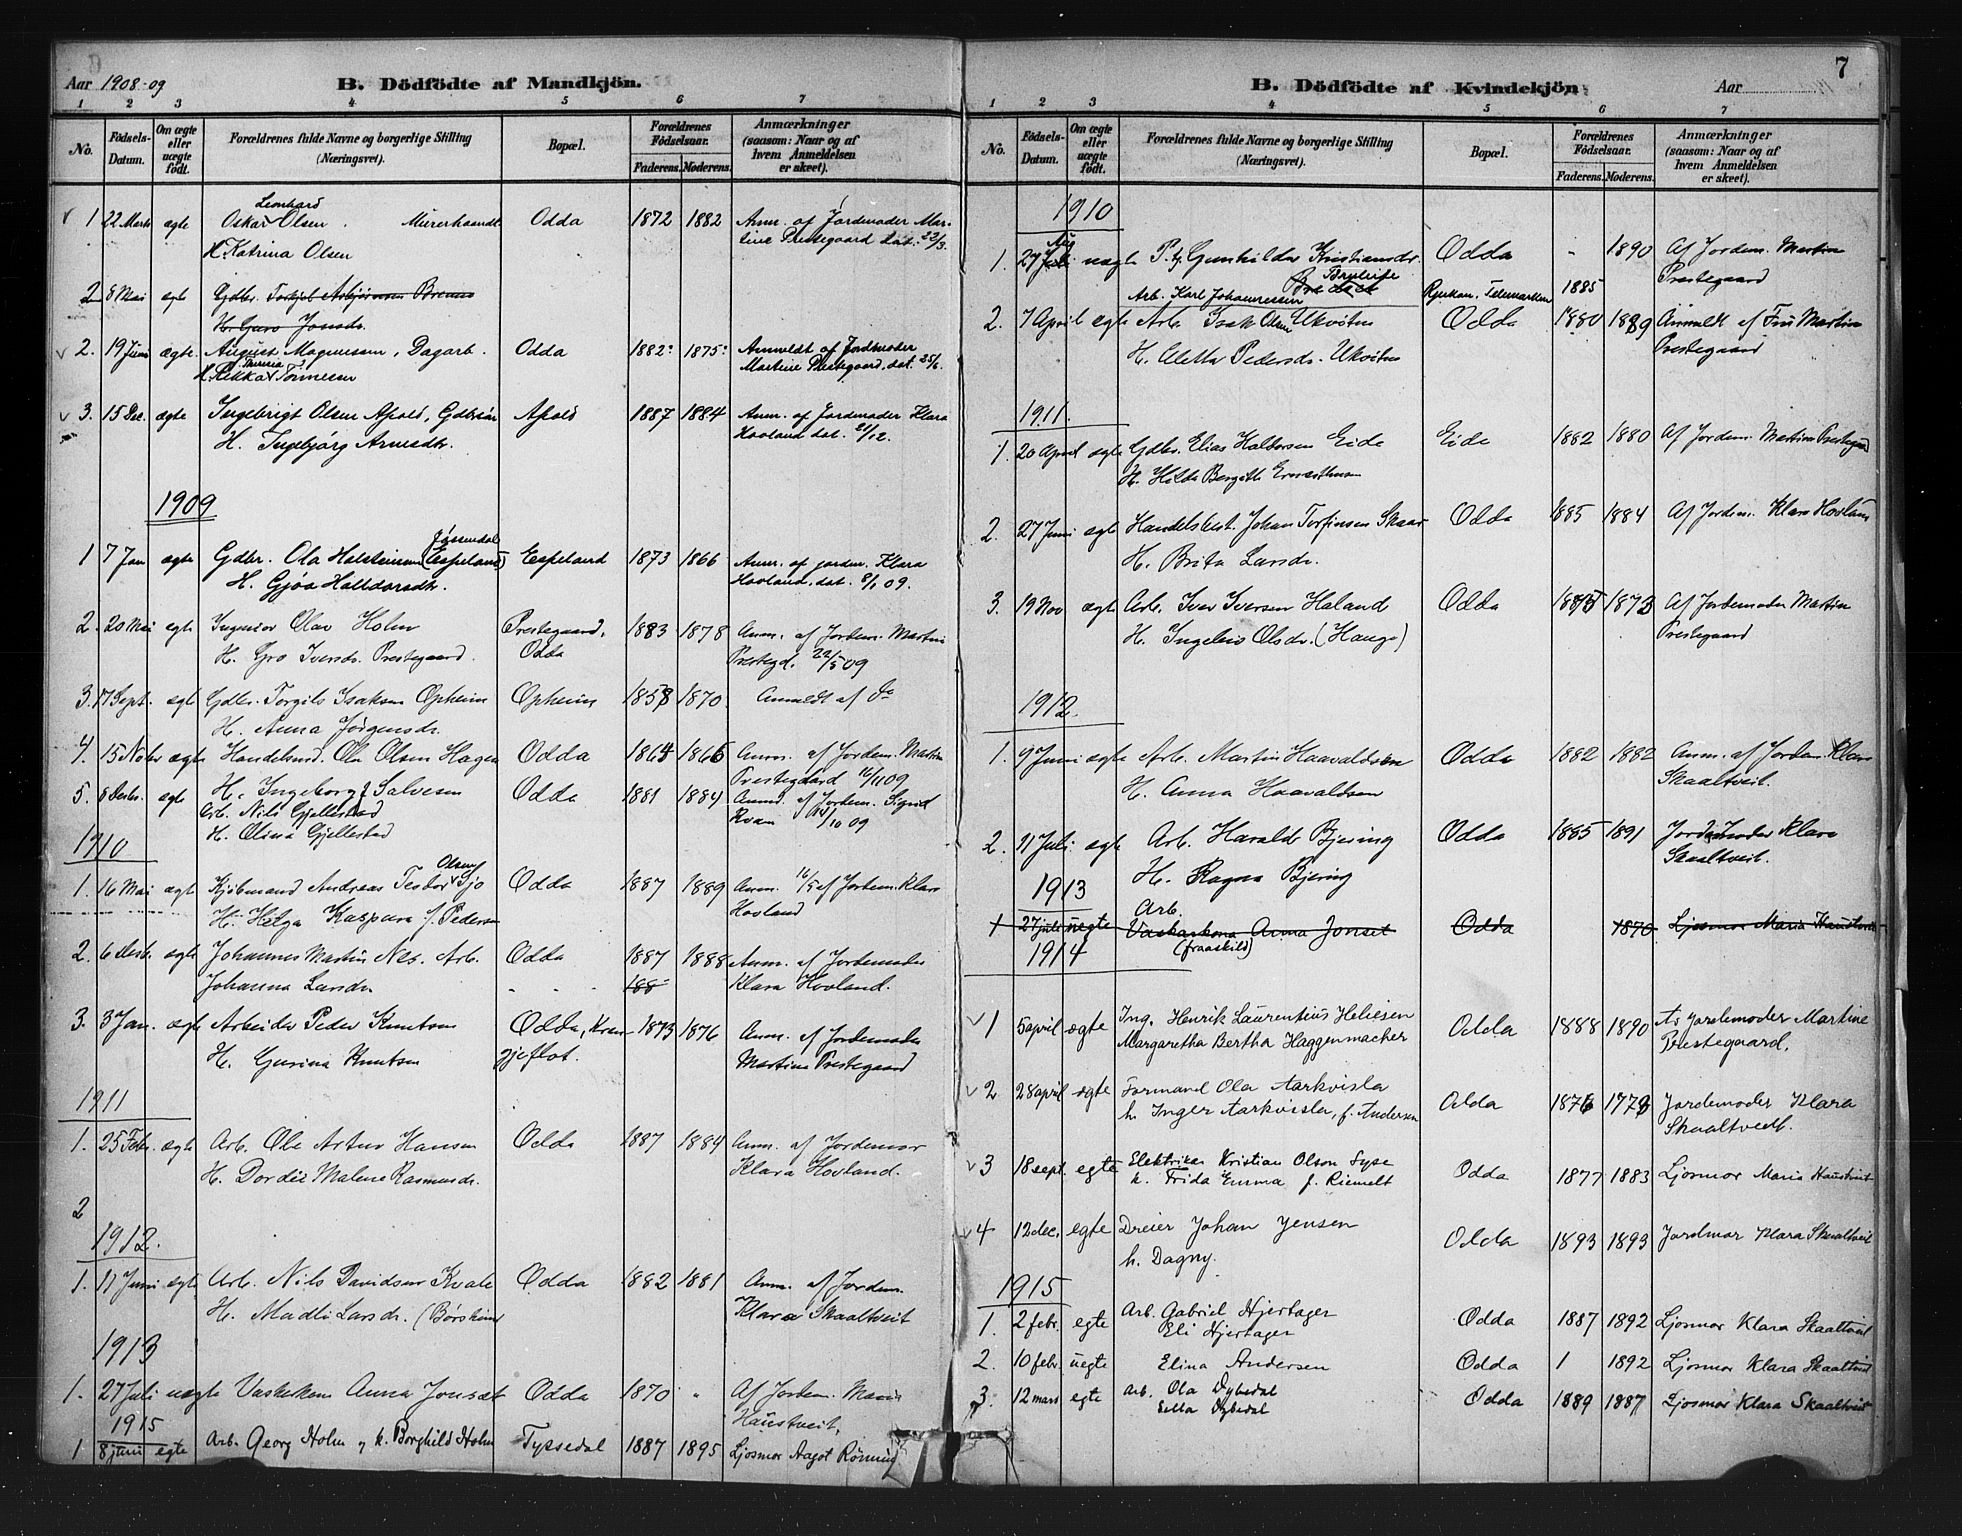 Aar 1908-09
B. Dödfödte af Mandkjön.
1 2 3 4 5 6 7
No.
Födsels-Datum.
Om ægte eller uægte födt.
Forældrenes fulde Navne og borgerlige Stilling (Næringsvei).
Bopæl.
Forældrenes Födselsaar.
Faderens. Moderens.
Anmærkninger (saasom: Naar og af hvem Anmeldelsen er skeet).
Leonhard
1 22 Marts ægte Oskar Olsen. Murerhaandt. Odda 1872 1882 Anm. af Jordmoder Mar-
H. Katrina Olsen tine Prestegaard dat. 22/3.
2 8 Mai egt Gdbr. Torkjel Asbjørnsen
H. Guro Jonsdr.
2. 19 Juni ægte. August Magnussen, Dagarb. Odda 1882 1875 Anmeldt af Jordmoder
H. Rikka Tønnesen Martine Prestegaard, dat. 25/6.
3. 15 Dec. ægte Ingebrigt Olsen Apold, Gdbr Apold 1887 1884 Anm. af Jordmoder Klara
H. Ingebjørg Arnesdtr. Hovland dat. 21/12.
1909
1 7 Jan ægte Gdbr. Ola Halsteinsen (Espeland) Espeland 1873 1866 Anm. af jordem. Klara
H. Gjøa Halldorsdtr. Hovland, dat. 8/1 09.
2. 20 Mai egt Ingeniør Olav Holm Prestegaard, 1883 1878 Anm. af Jordem. Martine
H. Gro Iversdr. Prestegaard. Odda Prestegd. 22/5 09
3. 17 Sept. egte Gdbr. Torgils Isaksen Opheim Opheim 1858 1870 Anmeldt af do
H. Anna Jørgensdr.
4. 15 Novbr egte Handelsmd. Ole Olsen Hagen Odda 1865 1866 Anm. af Jordem. Martine
H. Ingeborg f. Salvesen Prestegaard 16/11 09
5. 8 Decbr. egt Arb. Nils Gjellestad Odda 1881 1884 Anmd. af Jordem. Sigrid
H. Olina Gjellestad Kvam 09
1910
1. 16 Mai egt Kjøbmand Andreas Olsen Odda 1887 1889 Anm. 16/5 af Jordem. Klara
H. Helga Kaspara f. Pedersen Hovland
2. 6 Decbr. egte Johannes Martin Nes. Arb. Odda 1887 1888 Anm. af Jordemoder
Johanna Larsdr. 188 Klara Hovland.
3. 3 Jan. ægte Arbeider Peder Knutsen Odda, 1873 1876 Anm. af Jordemoder
H. Gurina Knutsen gjeflot. Martine Prestegaard
1911
1. 25 Febr. egte Arb. Ole Artur Hansen Odda 1887 1884 Anm. af Jordemor
H. Malene Rasmusdr. Klara Hovland.
2
1912.
1. 17 Juni egte Arb. Nils Davidsen Kvale Odda 1882 1881 Anm. af Jordem.
H. Madli Larsdr. Klara Skaaltveit
1913
1. 27 Juli uegte Anna Jonset Odda 1870 " Af Jordem. Maria
Haustveit.
1915
1 8 juni egte Arb. Georg Holm og h. Borghild Holm Tyssedal 1887 1895 Ljosmor Aagot Rønning
7
B. Dödfödte af Kvindekjön.
Aar
1 2 3 4 5 6 7
No.
Födsels-Datum.
Om ægte eller uægte födt.
Forældrenes fulde Navne og borgerlige Stilling (Næringsvei).
Bopæl.
Forældrenes Födselsaar.
Faderens. Moderens.
Anmærkninger (saasom: Naar og af hvem Anmeldelsen er skeet).
1910
Aug
1. 27 Juli uegte P. Gunhilda Kristiansdr. Odda - 1890 Af Jordem. Martine
Arb. Karl Johannessen Rjukan, Telemarken 1885 Prestegaard
2. 7 April egte Arb. Isak Olsen Ukvitne Odda 1880 1889 Anmeldt af Fru Martine
H. Aletta Pedersdr. Ukvitne Prestegaard
1911.
1. 20 April egte Gdbr. Elias Haldorsen Eide Eide 1882 1880 Af Jordem. Martine Prestegaard
H. Hilda Bergithe
2. 27 Juni egte Handelsbest. Johan Torfinsen Skaar Odda 1885 1884 Af Jordem. Klara Hovland
H. Brita Larsdr.
3. 19 Nov egte Arb. Iver Iversen Haland Odda 1873 Af Jordemoder Martine
H. Ingeleiv Olsdr. (Hauge) Prestegaard
1912.
1. 9 Juni egte Arb. Martin Haavaldsen Odda 1882 1882 Anm. af Jordem. Klara
H. Anna Haavaldsen Skaaltveit.
2. 11 Juli egte Arb. Harald Bjering Odda 1885 1891 Jordemoder Klara
H. Ragna Bjering Skaaltveit.
1913
Arb.
1 27 juli uegte Vaskekona Anna Jonset Odda 1870 Ljosmor Maria Haustveit
(fraaskild)
1914
1 5 april ægte Ing. Henrik Laurentius Heliesen Odda 1888 1890 Av Jordemoder Martine
Margaretha Bertha Haggenmacher Prestegaard.
2 28 april ægte Formand Ola Aarkvisla Odda 1876 1773 Jordemoder Klara
h. Inger Aarkvisla, f. Andersen Skaaltvedt.
3 18 sept. egte Elektriker Kristian Olson Syse Odda 1877 1883 Ljosmor Maria Haustveit
h. Frida Emma f. Riemelt
4 12 dec. egte Dreier Johan Jensen Odda 1893 1893 Jordmor Klara Skaaltveit
h. Dagny.
1915
1. 2 febr. egte Arb. Gabriel Hjertager Odda 1887 1892 Ljosmor Klara Skaaltveit
Eli Hjertager
2. 10 febr. uegte Elina Andersen Odda 1 1892 Ljosmor Klara Skaaltveit
3. 12 mars egte Arb. Ola Dybedal Odda 1889 1887 Ljosmor Klara Skaaltveit
Dybedal